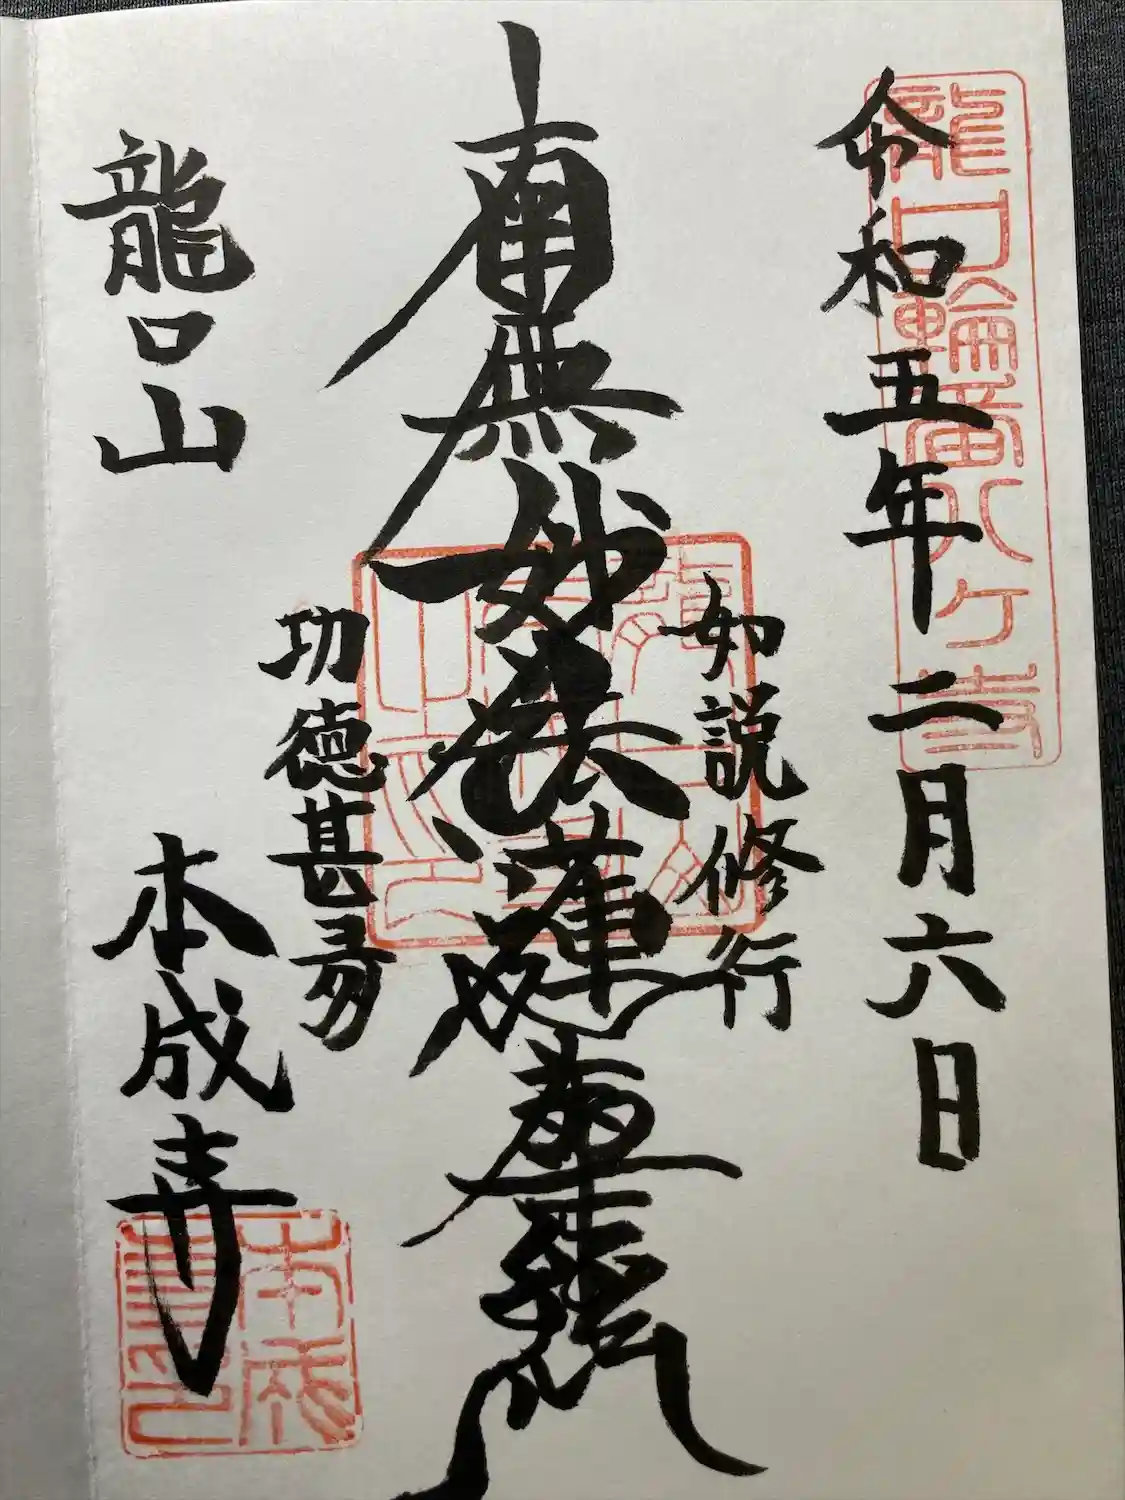 龍口輪番八ヶ寺
令和五年二月六日
如説修行
南無妙法蓮華経
功徳甚多
龍口山
本成寺
本成
寺印